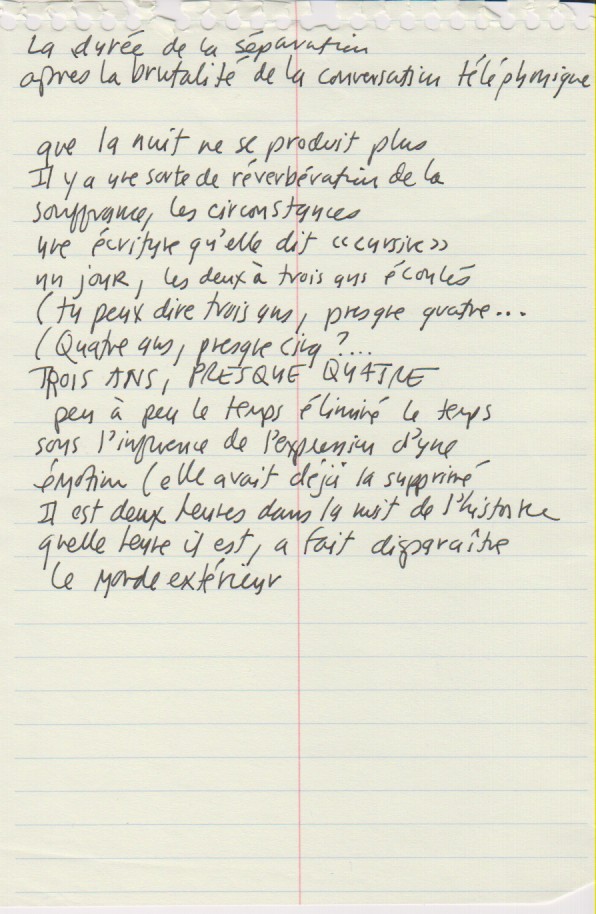 La durée de la séparation
apres la brutalité de la conversation téléphonique
que la nuit ne se produit plus
Il y a une sorte de réverbération de la
souffrance, les circonstances
une écriture qu'elle dit «cursive»
un jour, les deux à trois ans écoulés
(tu peux dire trois ans, presque quatre...
(Quatre ans, presque cinq?...
TROIS ANS, PRESQUE QUATRE
peu à peu le temps éliminé le temps
sous l'influence de l'expression d'une
émotion (elle avait déjà la supprimé
Il est deux heures dans la nuit de l'histoire
quelle heure il est, a fait disparaître
le monde extérieur